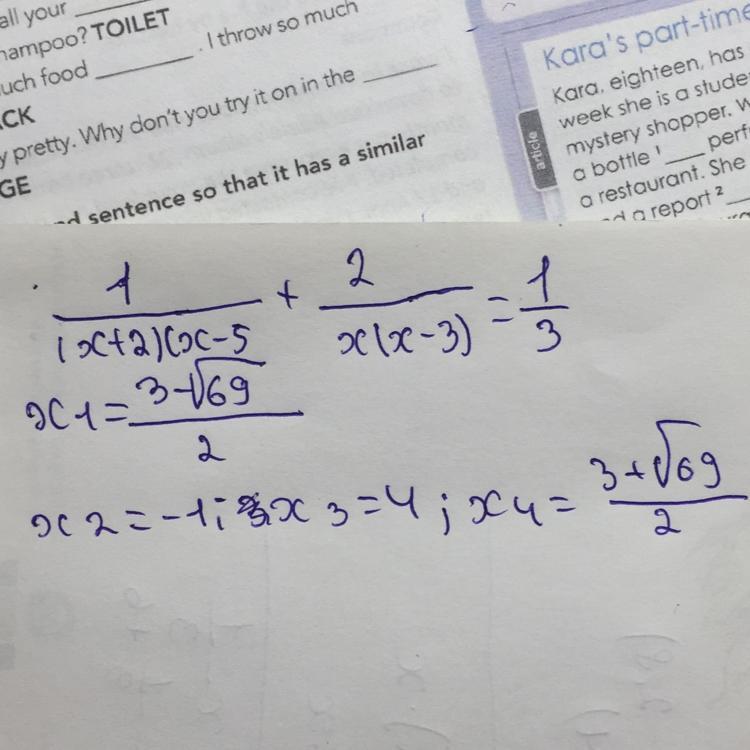 all your
hampoo? TOILET
uch food ______ . I throw so much
ACK
y pretty. Why don't you try it on in the ______
GE
nd sentence so that it has a similar
Kara's part-time
article
Kara, eighteen, has
week she is a stude
mystery shopper. W
a bottle ¹ ___ perf
a restaurant. She
d a report ²
1/((x+2)(x-5 + 2/(x(x-3)) = 1/3
x1 = (3-√69)/2
x2 = -1; x3 = 4; x4 = (3+√69)/2